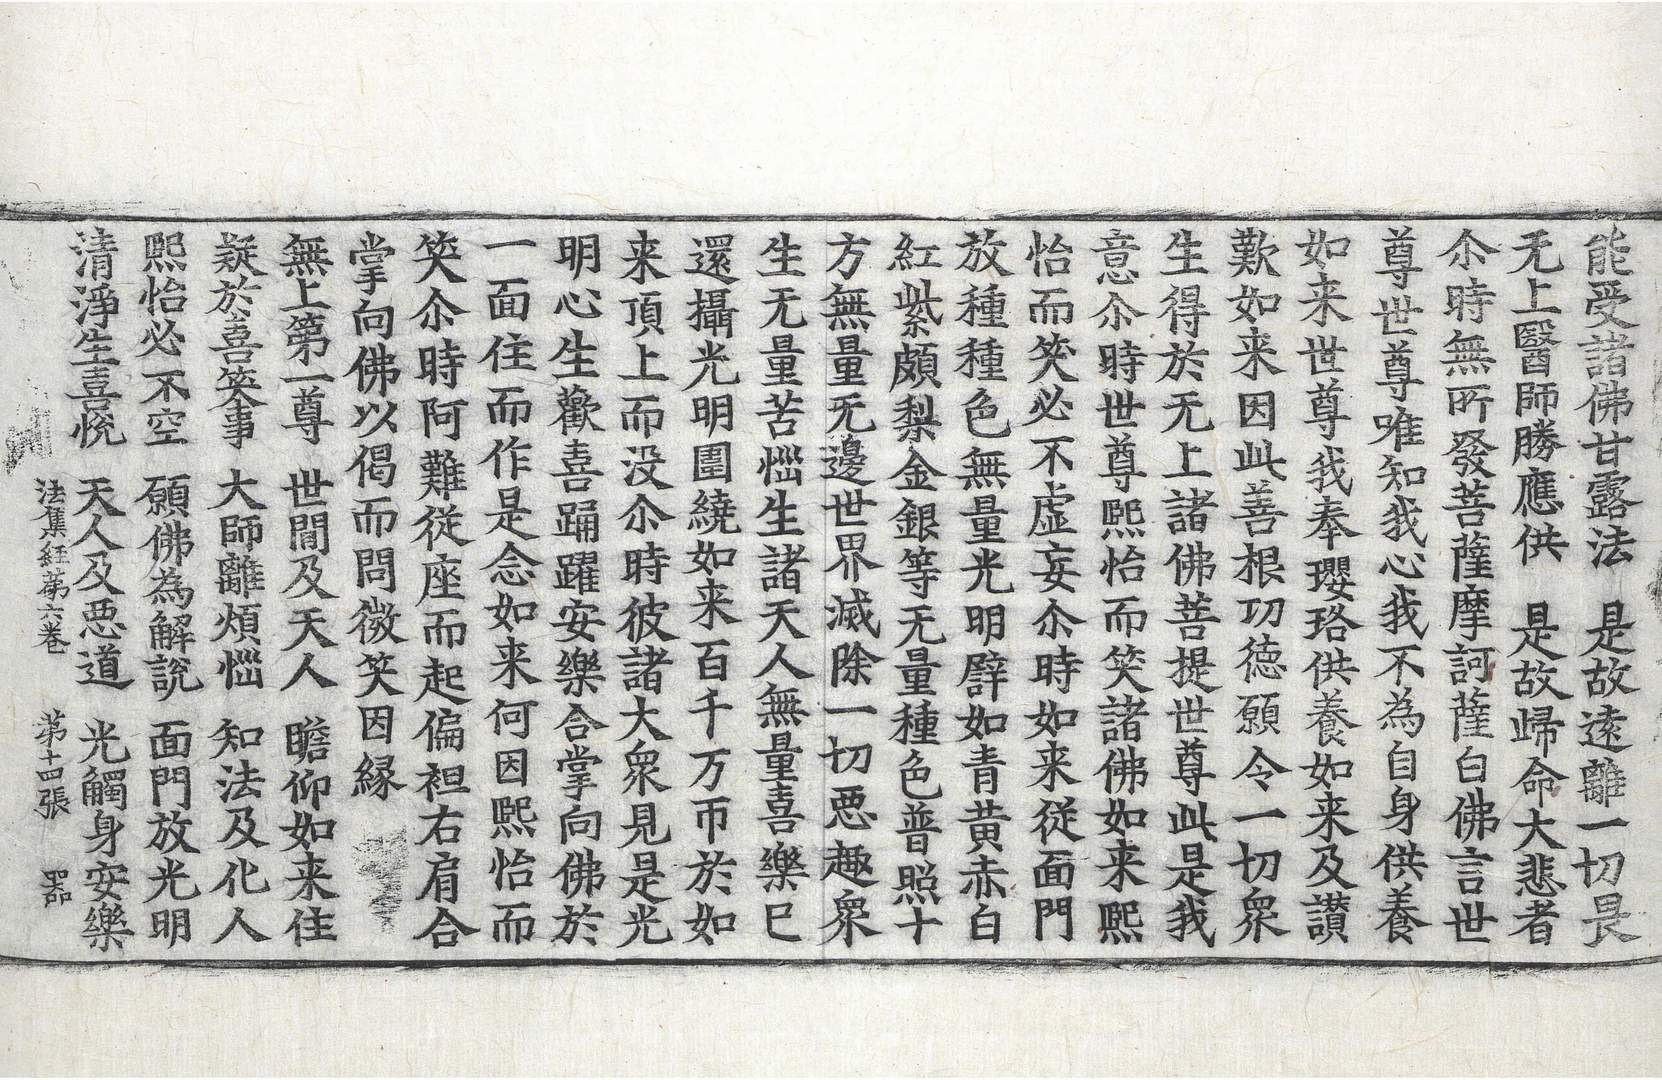 能受諸佛甘露法　是故遠離一切畏
无上醫師勝應供　是故歸命大悲者
尒時無所發菩薩摩訶薩白佛言世
尊世尊唯知我心我不為自身供養
如来世尊我奉瓔珞供養如来及讃
歎如来因此善根功德願令一切衆
生得於无上諸佛菩提世尊此是我
意尒時世尊熙怡而笑諸佛如来熙
怡而笑必不虛妄尒時如来從面門
放種種色無量光明譬如青黄赤白
紅紫頗梨金銀等无量種色普照十
方無量无邊世界滅除一切惡趣衆
生无量苦惱生諸天人無量喜樂已
還攝光明圍繞如来百千万帀於如
来頂上而没尒時彼諸大衆見是光
明心生歡喜踊躍安樂合掌向佛於
一面住而作是念如来何因熙怡而
笑尒時阿難從座而起偏袒右肩合
掌向佛以偈而問微笑因縁
無上第一尊　世間及天人　瞻仰如来住
疑於喜笑事　大師離煩惱　知法及化人
熙怡必不空　願佛為解説　面門放光明
清淨生喜悦　天人及惡道　光觸身安樂
法集經第六卷　第十四張　器